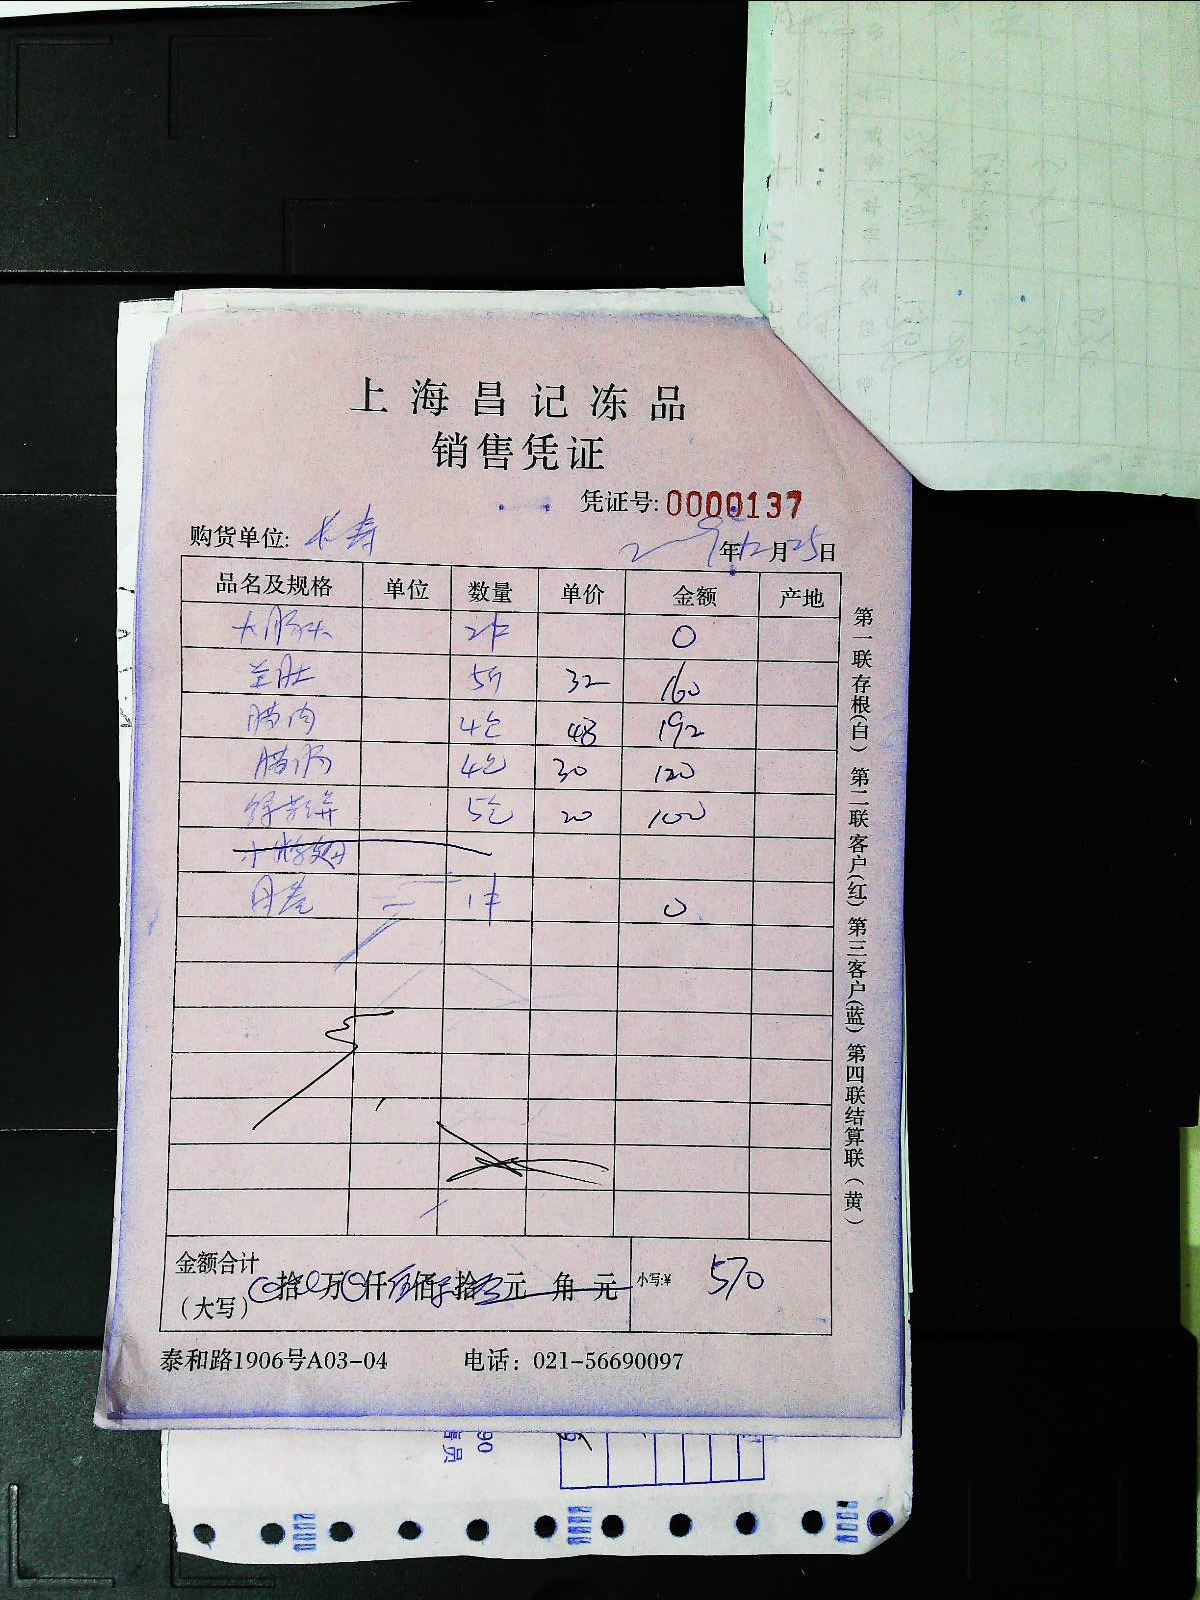 上海昌记冻品
销售凭证
凭证号: 0000137
购货单位: 长寿 年12月25日
品名及规格 单位 数量 单价 金额 产地
大肠头 2件 0
羊肚 5斤 32 160
腊肉 4包 48 192
腊肠 4包 30 120
5包 20 100
月亮 1件 0
金额合计
(大写) 拾 万 仟 伍佰 拾 元 角 元 小写:¥ 570
泰和路1906号A03-04 电话: 021-56690097
第一联存根(白) 第二联客户(红) 第三客户(蓝) 第四联结算联(黄)